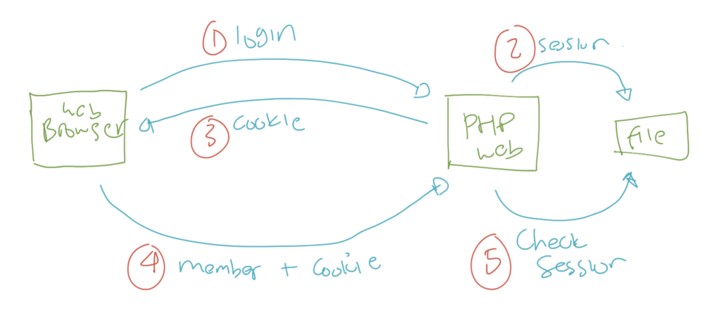 1 login
2 session
web
Browser
3 cookie
PHP
web
File
4 member + cookie
5 Check
Session